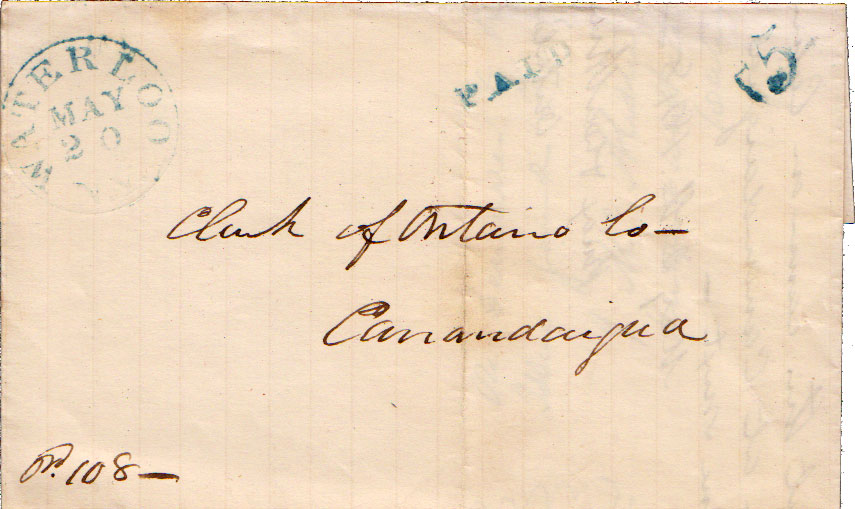 WATERLOO
MAY
20
PAID
5
Clerk of Ontario Co—
Canandaigua
108—